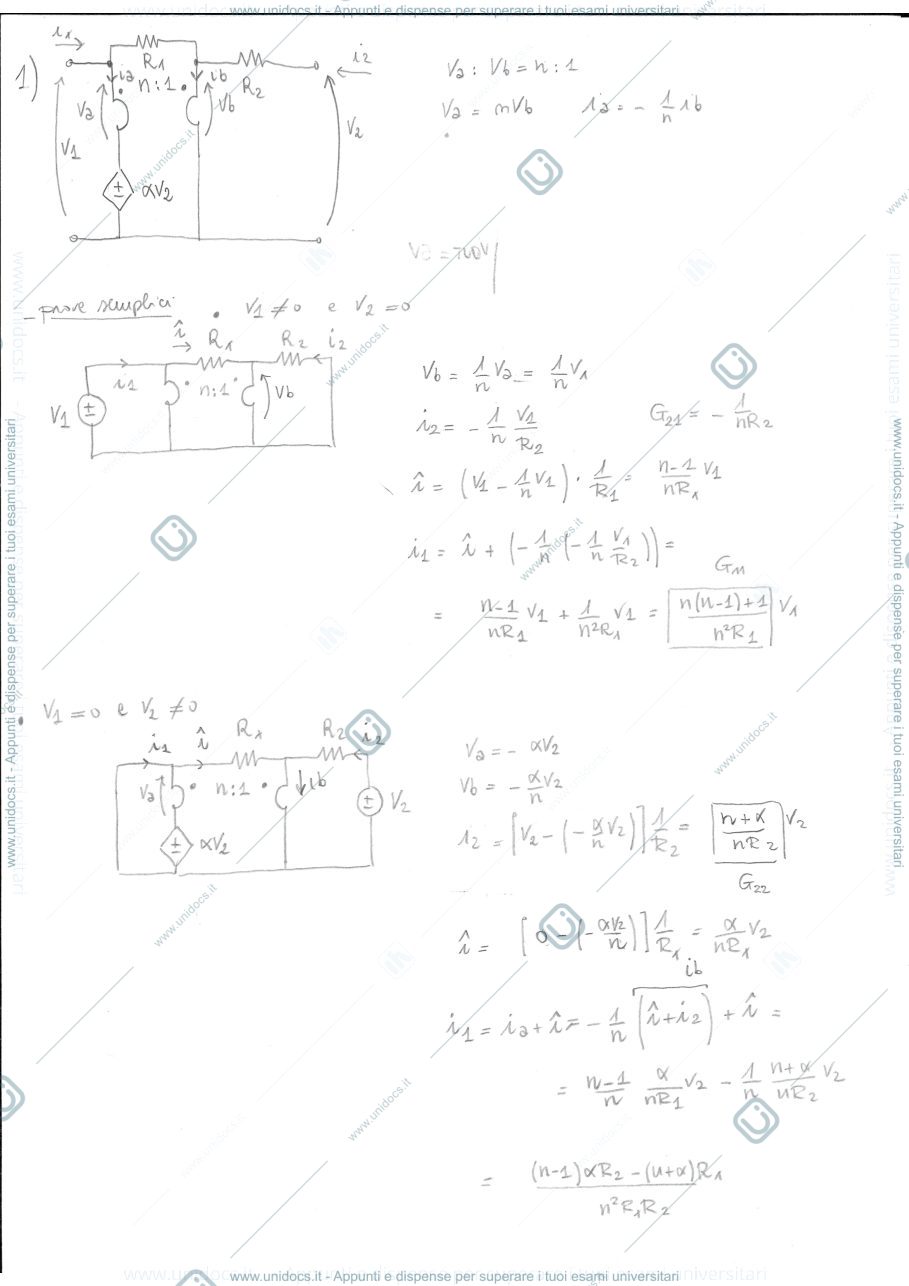 www.unidocs.it - Appunti e dispense per superare i tuoi esami universitari
1)
i1
R1
i2
ia
n:1
ib
R2
Va
Vb
V1
V2
αV2
Va : Vb = n : 1
Va = nVb ia = - 1/n ib
- prove semplici • V1 ≠ 0 e V2 = 0
î R1 R2 i2
i1 n:1 Vb
V1
Vb = 1/n Va = 1/n V1
i2 = - 1/n V1/R2 G21 = - 1/nR2
î = (V1 - 1/n V1) · 1/R1 = n-1/nR1 V1
i1 = î + (- 1/n (- 1/n V1/R2)) =
G11
= n-1/nR1 V1 + 1/n²R1 V1 = n(n-1)+1/n²R1 V1
• V1 = 0 e V2 ≠ 0
i1 î R1 R2 i2
Va n:1 ib
V2
αV2
Va = - αV2
Vb = - α/n V2
i2 = [V2 - (- α/n V2)] 1/R2 = n+α/nR2 V2
G22
î = [0 - (- αV2/n)] 1/R1 = α/nR1 V2
ib
i1 = ia + î = - 1/n (î + i2) + î =
= n-1/n α/nR1 V2 - 1/n n+α/nR2 V2
= (n-1)αR2 - (n+α)R1/n²R1R2
www.unidocs.it - Appunti e dispense per superare i tuoi esami universitari